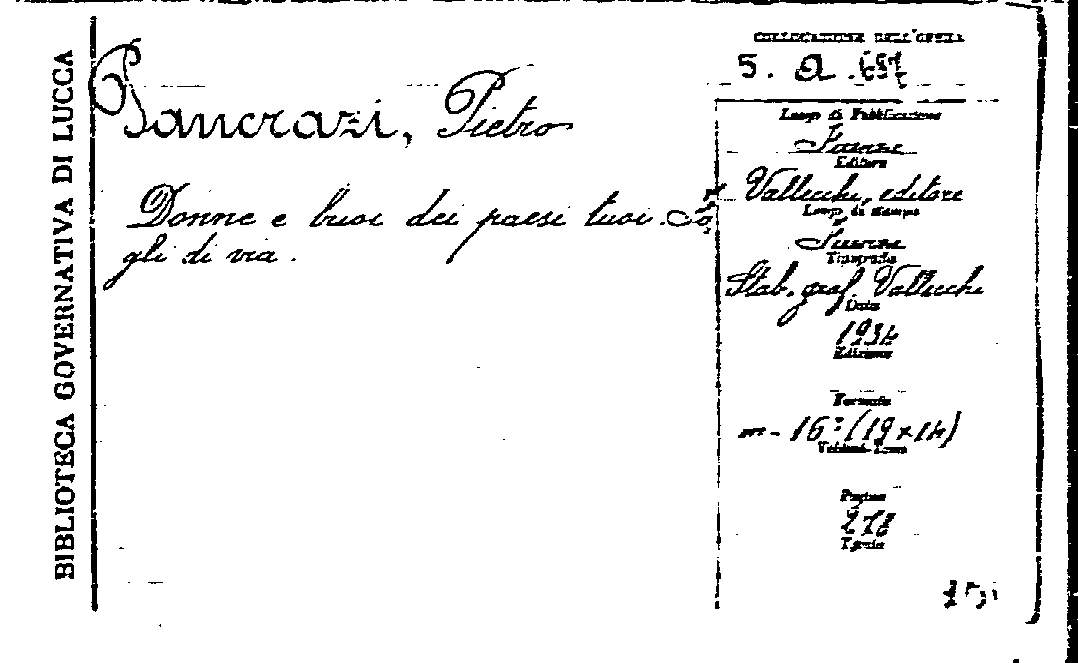 BIBLIOTECA GOVERNATIVA DI LUCCA
COLLOCAZIONE DELL'OPERA
5. a. 697
Pancrazi, Pietro
Donne e buoi dei paesi tuoi. Fo-
gli di via.
Luogo di Pubblicazione
Firenze
Editore
Vallecchi, editore
Luogo di stampa
Firenze
Tipografia
Stab. graf. Vallecchi
Data
1934
Edizione
Formato
in-16º (19x14)
Volumi-Tomo
Pagine
278
Tavole